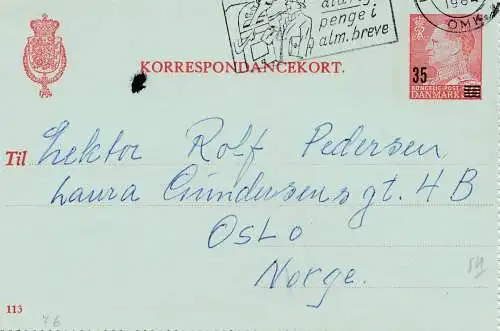 penge i
alm. breve
196
OMK
KORRESPONDANCEKORT.
35
KONGELIG POST
DANMARK
Til Lektor Rolf Pedersen
Laura Gundersens gt. 4 B
Oslo
Norge.
113